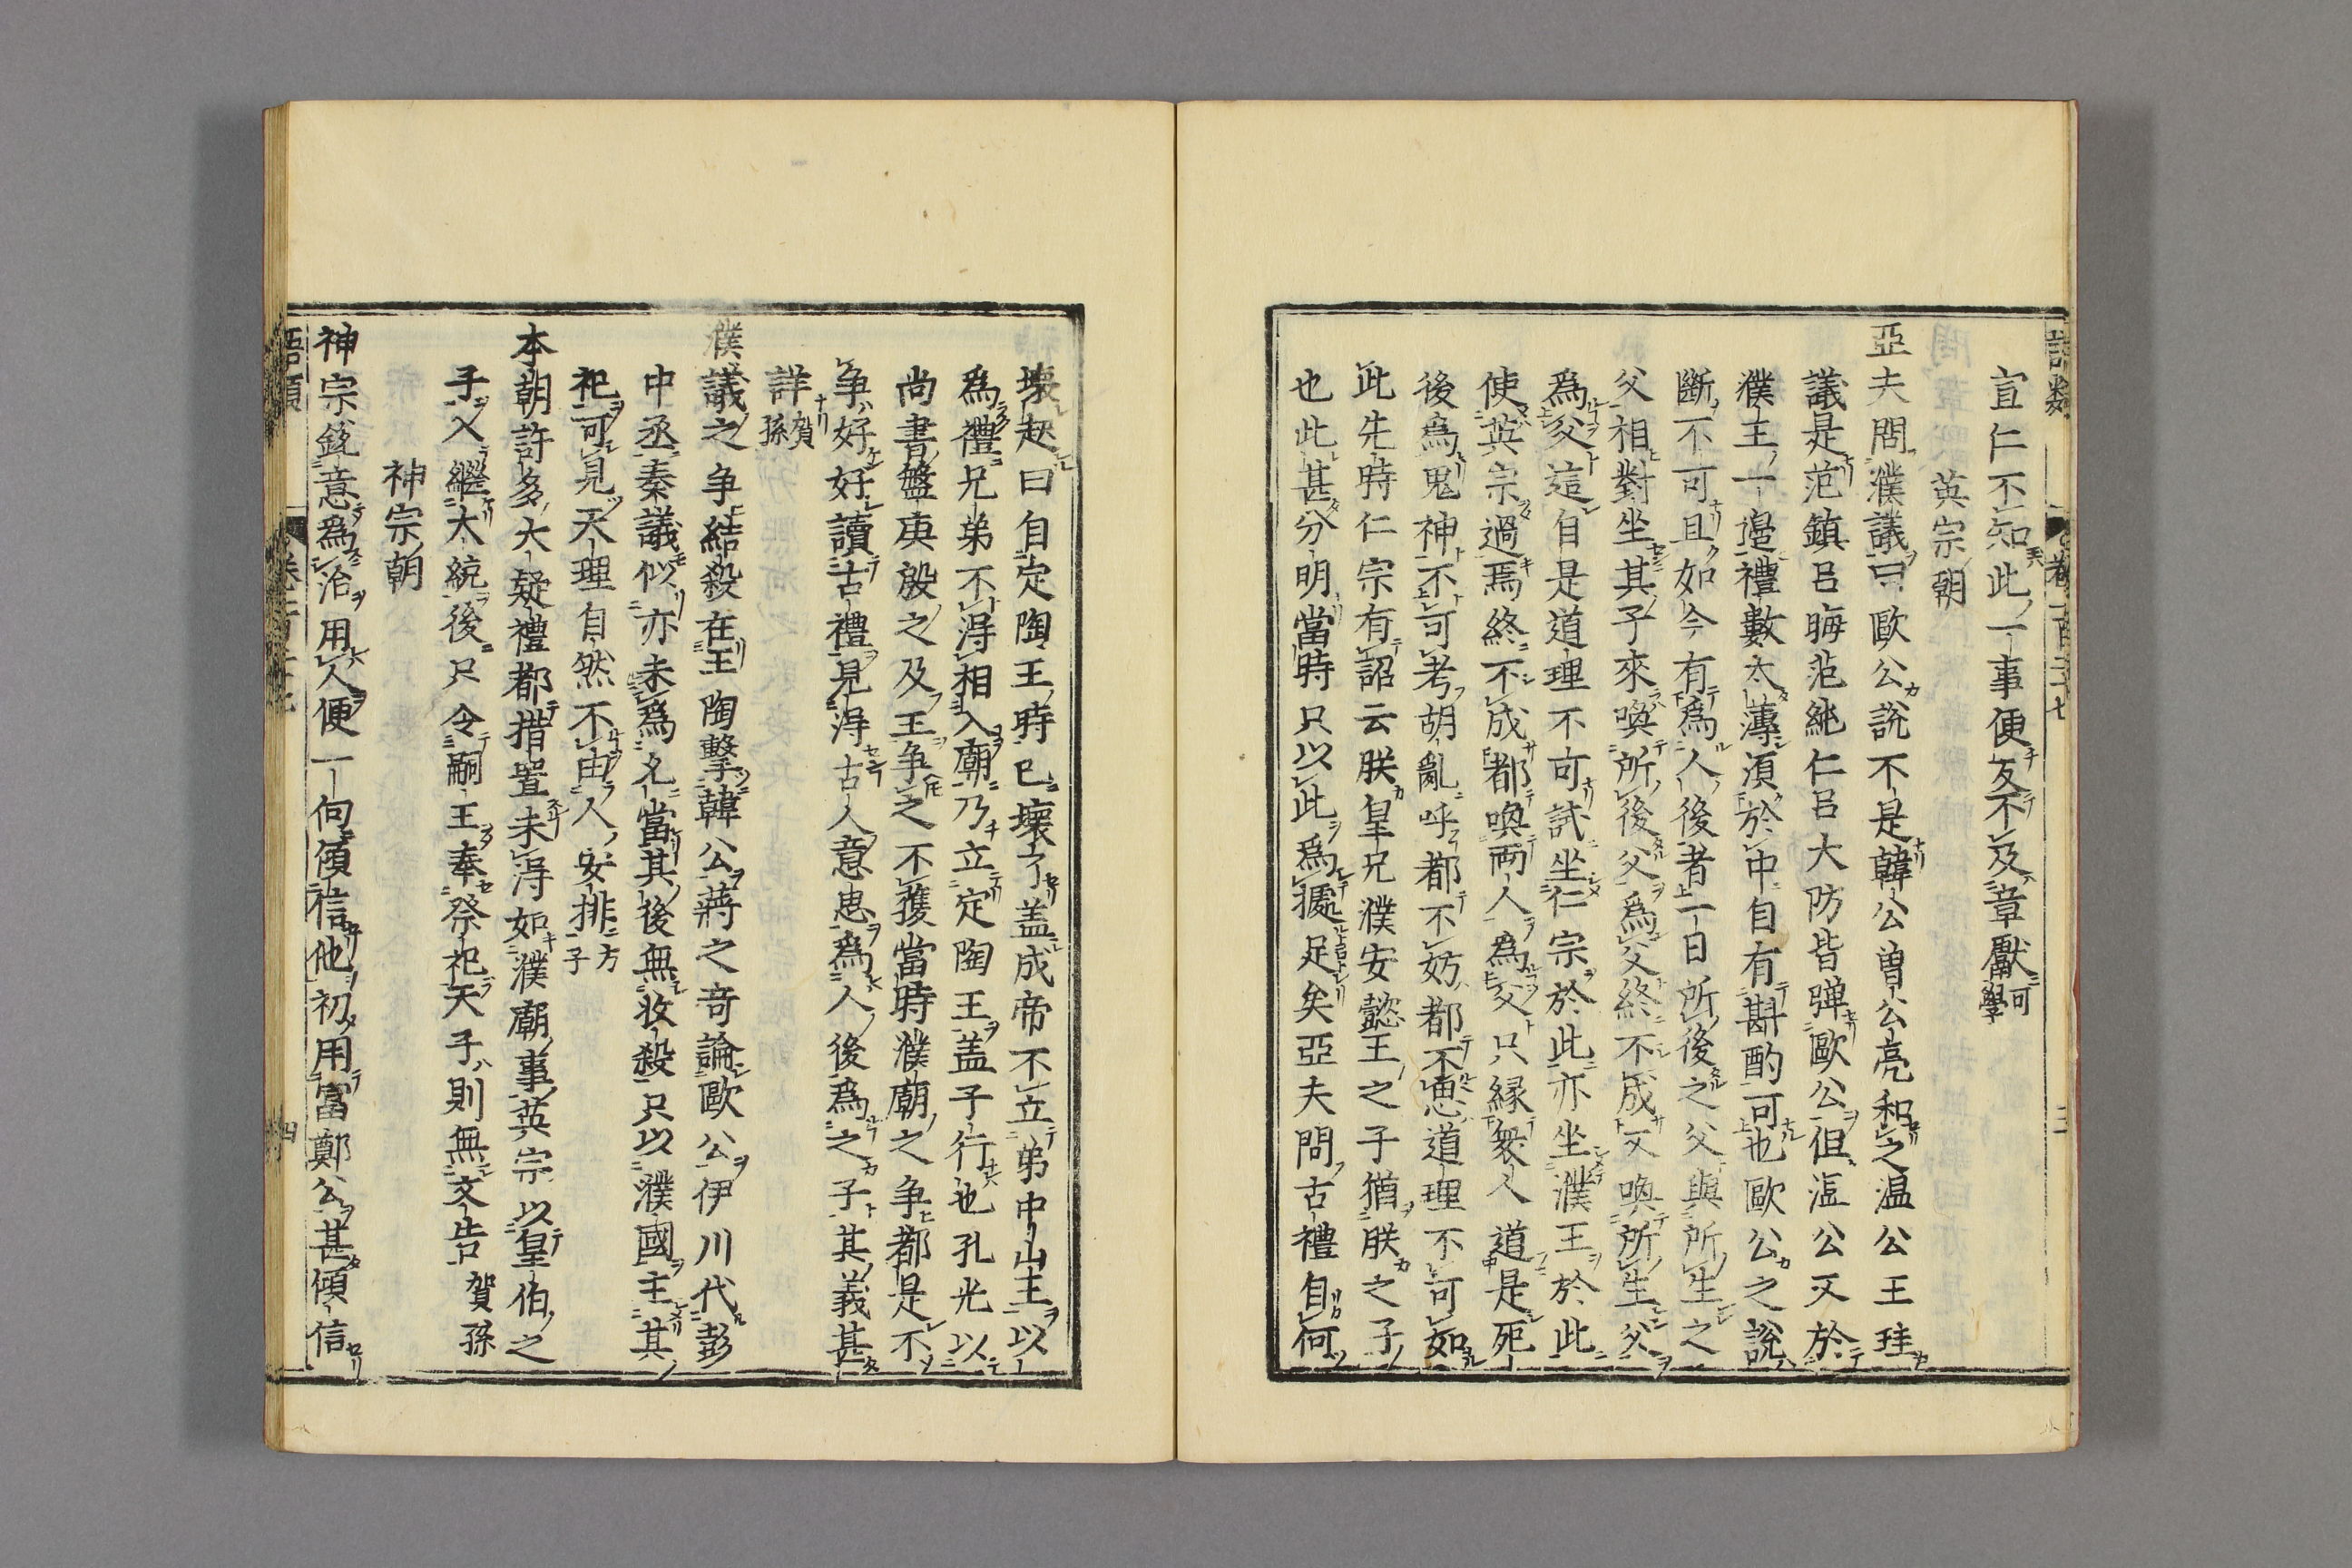 宣仁不知此一事便反不及章獻可學
英宗朝
亞夫問濮議曰歐公說不是韓公曽公亮和之温公王珪
議是范鎮吕晦范純仁吕大防皆弹歐公但温公又於
濮王一邉禮數太薄湏於中自有斟酌可也歐公之說
斷不可且如今有爲人後者一日所後之父與所生之
父相對坐其子來喚所後父爲父終不成又喚所生父
爲父這自是道理不可試坐仁宗於此亦坐濮王於此
使英宗過焉終不成都喚兩人爲父只縁衆人道是死
後爲鬼神不可考胡亂呼都不妨都不思道理不可如
此先時仁宗有詔云朕皇兄濮安懿王之子猶朕之子
也此甚分明當時只以此爲據足矣亞夫問古禮自何
壞起曰自定陶王時已壞了盖成帝不立弟中山王以
爲禮兄弟不淂相入廟乃立定陶王盖子行也孔光以
尚書盤庚殷之及王争之不獲當時濮廟之争都是不
争好好讀古禮見淂古人意思爲人後爲之子其義甚
詳賀孫
濮議之争結殺在王陶擊韓公蔣之竒論歐公伊川代彭
中丞奏議似亦未爲允當其後無收殺只以濮國主其
祀可見天理自然不由人安排方子
本朝許多大疑禮都措置未淂如濮廟事英宗以皇伯之
子入繼大統後只令嗣王奉祭祀天子則無文告 賀孫
神宗朝
神宗鋭意爲治用人便一向傾信他初用富鄭公甚傾信